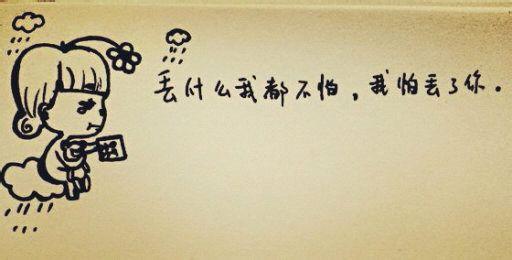 丢什么我都不怕，我怕丢了你。